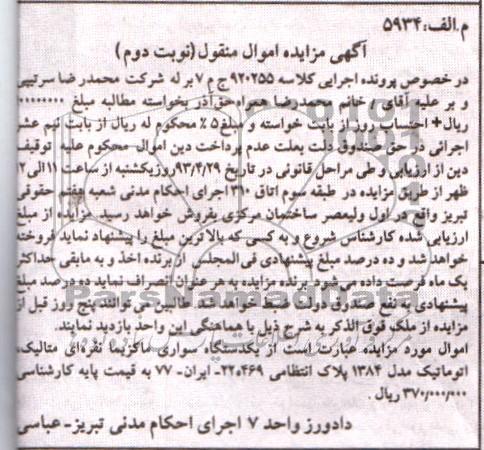 م.الف:۵۹۳۴
آگهی مزایده اموال منقول (نوبت دوم)
در خصوص پرونده اجرایی کلاسه ۹۲۰۲۵۵ ج م ۷ بر له شرکت محمدرضا سرتیپی
و بر علیه آقای / خانم محمدرضا همراه حق آذر بخواسته مطالبه مبلغ
ریال+ احتساب روز از بابت خواسته و مبلغ ۵٪ محکوم له ریال از بابت نیم عشر
اجرائی در حق صندوق دولت بعلت عدم پرداخت دین اموال محکوم علیه توقیف
دین از ارزیابی و طی مراحل قانونی در تاریخ ۹۳/۴/۲۹ روز یکشنبه از ساعت ۱۱ الی ۱۲
ظهر از طریق مزایده در طبقه سوم اتاق ۳۱۰ اجرای احکام مدنی شعبه هفتم حقوقی
تبریز واقع در اول ولیعصر ساختمان مرکزی بفروش خواهد رسید مزایده از مبلغ
ارزیابی شده کارشناس شروع و به کسی که بالاترین مبلغ را پیشنهاد نماید فروخته
خواهد شد و ده درصد مبلغ پیشنهادی فی المجلس از برنده اخذ و به مابقی حداکثر
یک ماه فرصت داده می شود. برنده مزایده به هر عنوان انصراف نماید ده درصد مبلغ
پیشنهادی به نفع صندوق دولت ضبط خواهد شد. طالبین می توانند پنج روز قبل از
مزایده از ملک فوق الذکر به شرح ذیل با هماهنگی این واحد بازدید نمایند.
اموال مورد مزایده عبارت است از یکدستگاه سواری ماکزیما نقره ای متالیک،
اتوماتیک مدل ۱۳۸۴ پلاک انتظامی ۴۶۹ه۲۲- ایران- ۷۷ به قیمت پایه کارشناسی
۳۷۰/۰۰۰/۰۰۰ ریال.
دادورز واحد ۷ اجرای احکام مدنی تبریز-عباسی
ParsNamadData